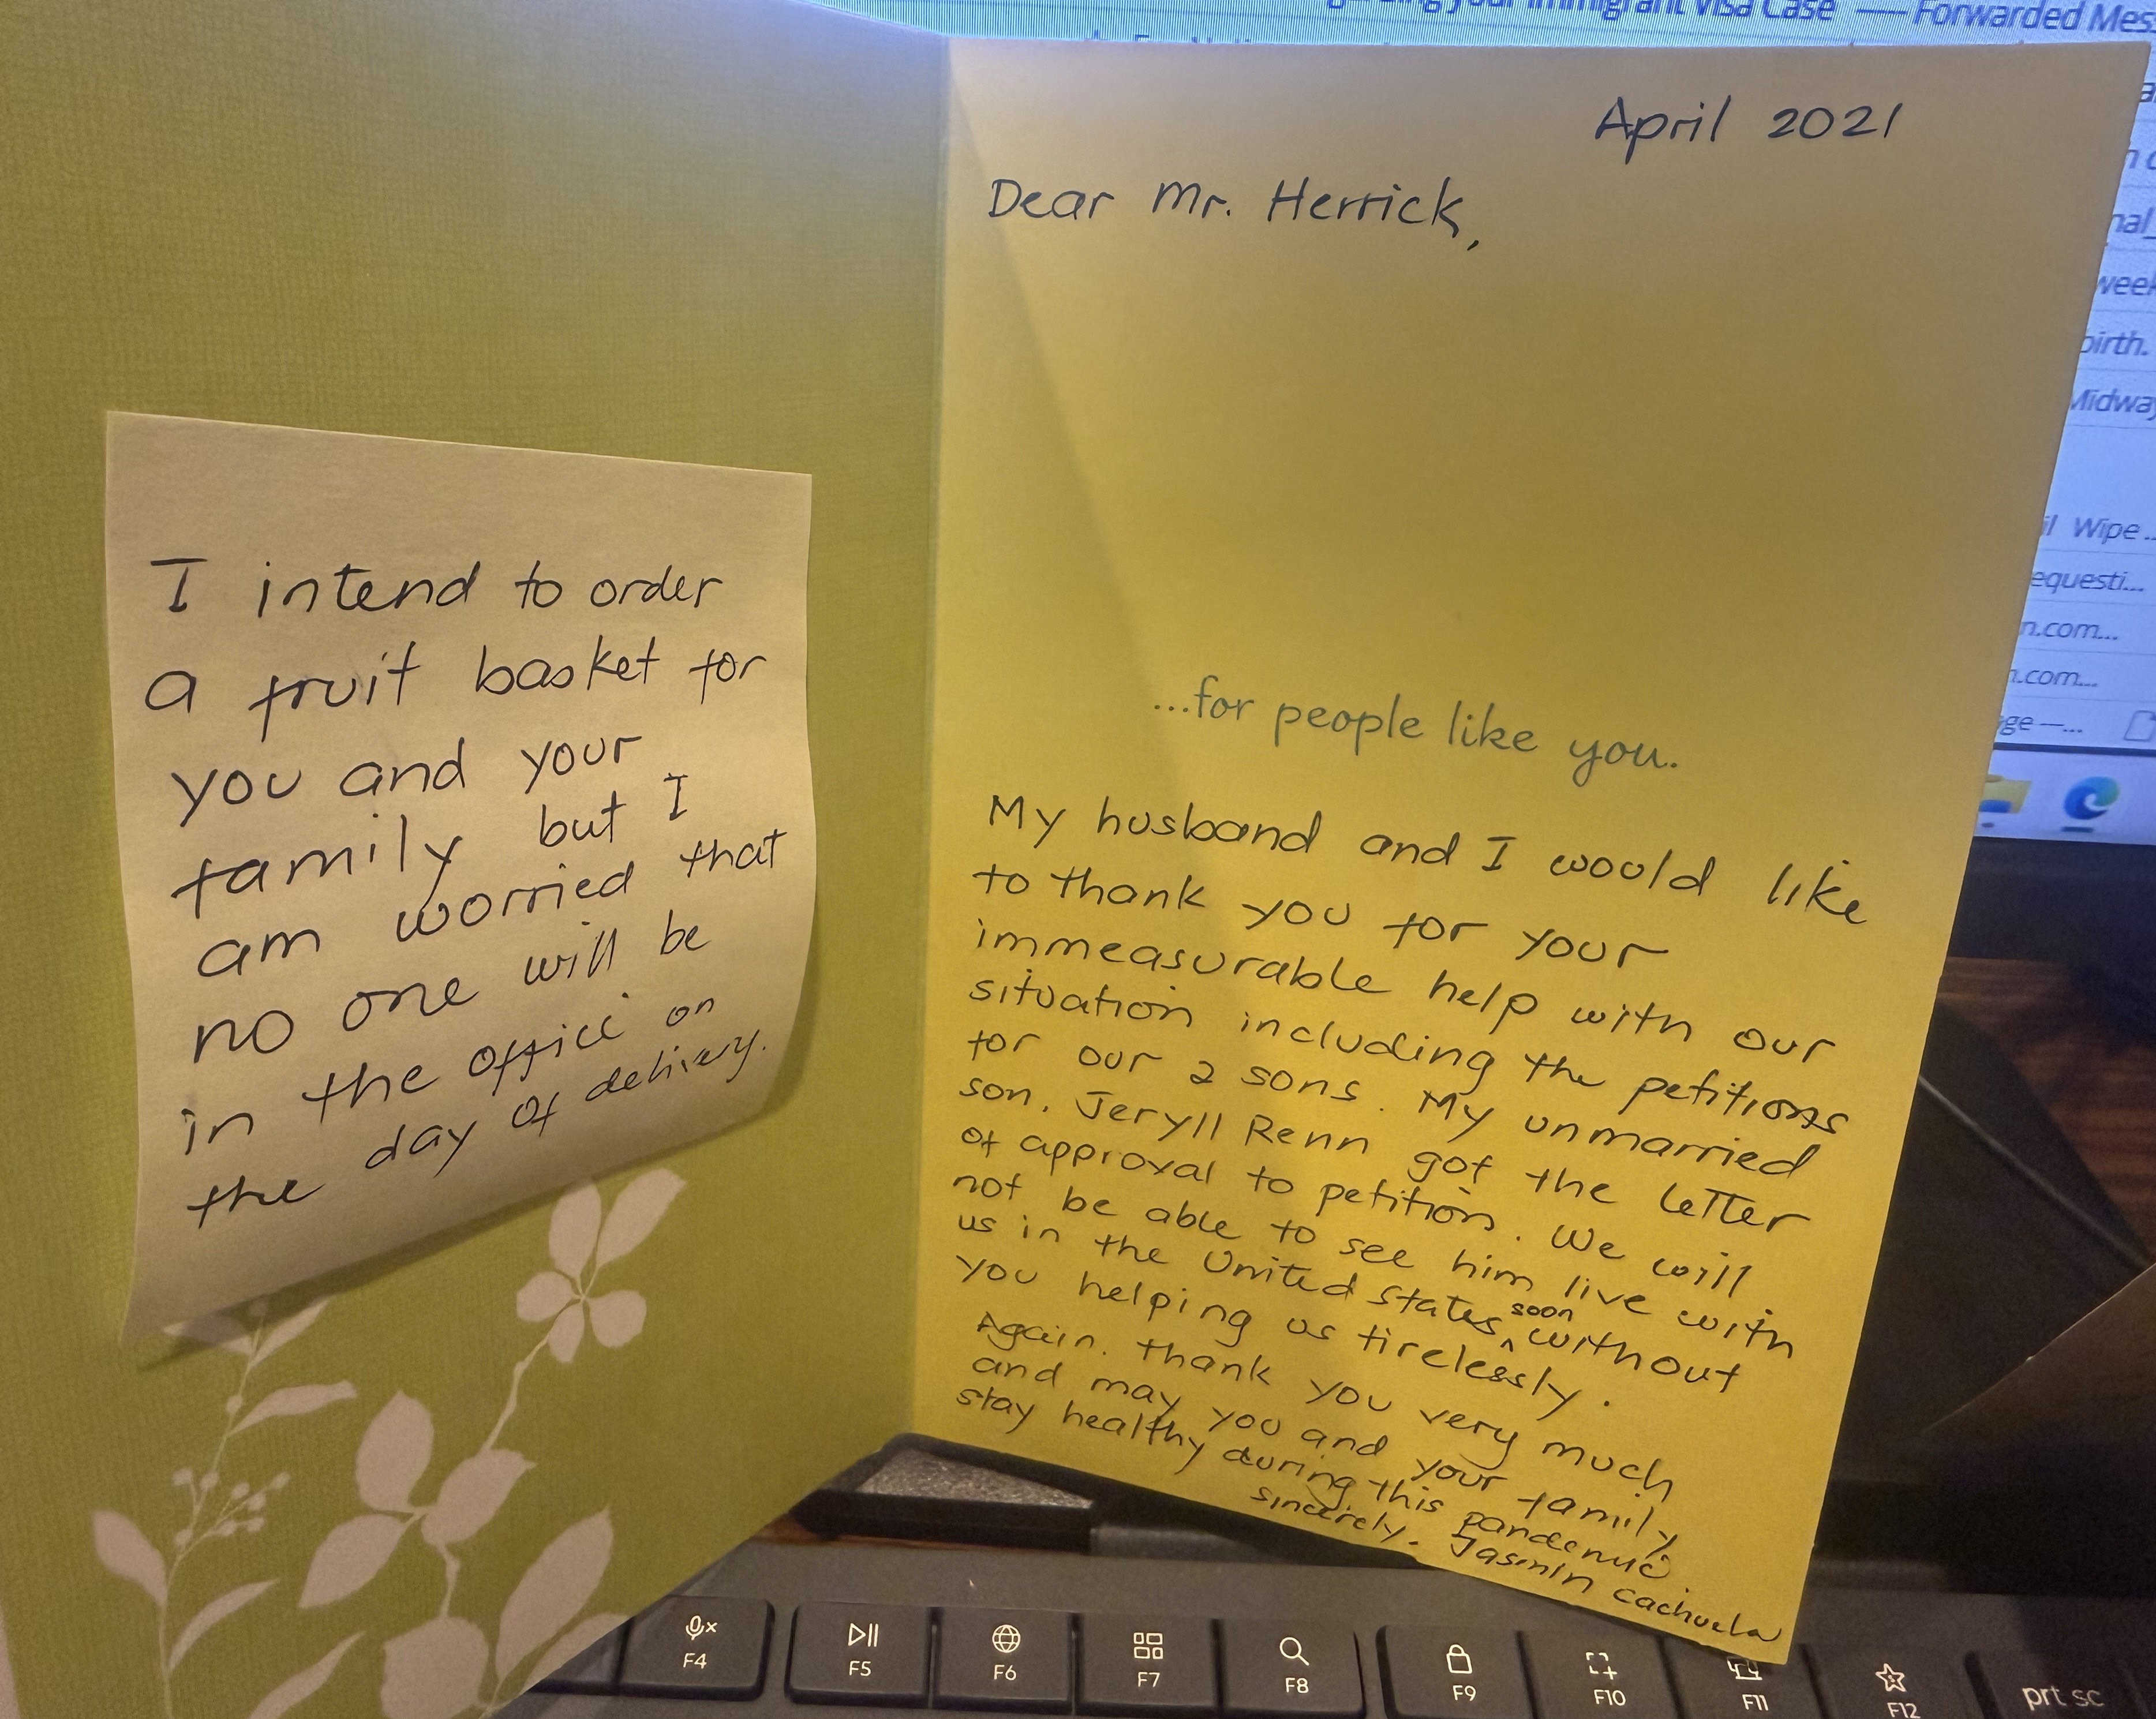 I intend to order
a fruit basket for
you and your
family but I
am worried that
no one will be
in the office on
the day of delivery.
April 2021
Dear Mr. Herrick,
...for people like you.
My husband and I would like
to thank you for your
immeasurable help with our
situation including the petitions
for our 2 sons. My unmarried
son, Jeryll Renn got the letter
of approval to petition. We will
not be able to see him live with
us in the United States soon without
you helping us tirelessly.
Again, thank you very much
and may you and your family
stay healthy during this pandemic.
Sincerely, Jasmin Cachuela
your Immigrant Visa Case — Forwarded Mes
week
birth.
Midway
Wipe...
equesti...
n.com...
.com...
ge —...
F4
F5
F6
F7
F8
F9
F10
F11
F12
prt sc